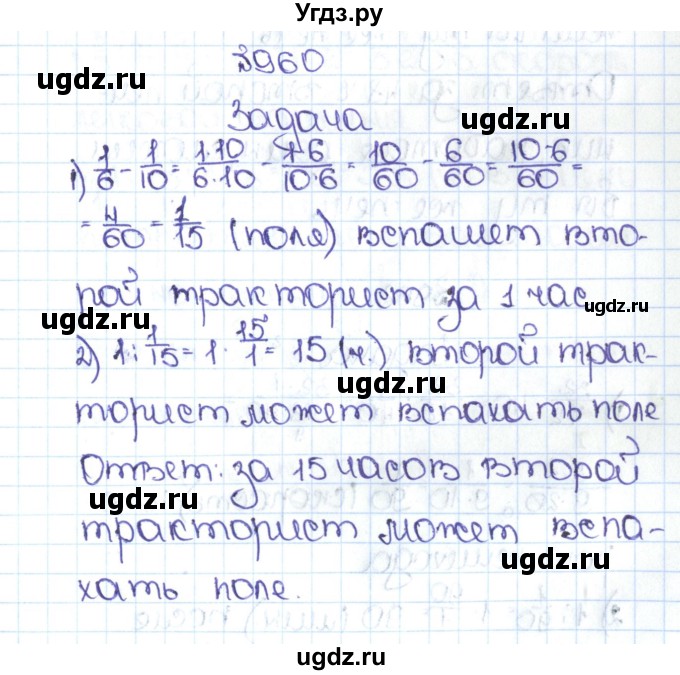 Угдз.ру
№960
ugdz.ru
Задача
ugdz.ru
1) 1/6 - 1/10 = 1·10/6·10 - 1·6/10·6 = 10/60 - 6/60 = 10-6/60 =
= 4/60 = 1/15 (поля) вспашет вто-
рой тракторист за 1 час
ugdz.ru
ugdz.ru
2) 1 : 1/15 = 1 · 15/1 = 15 (ч.) второй трак-
ugdz.ru
торист может вспахать поле
Ответ: за 15 часов второй
ugdz.ru
ugdz.ru
тракторист может вспа-
ugdz.ru
хать поле.
ugdz.ru
ugdz.ru